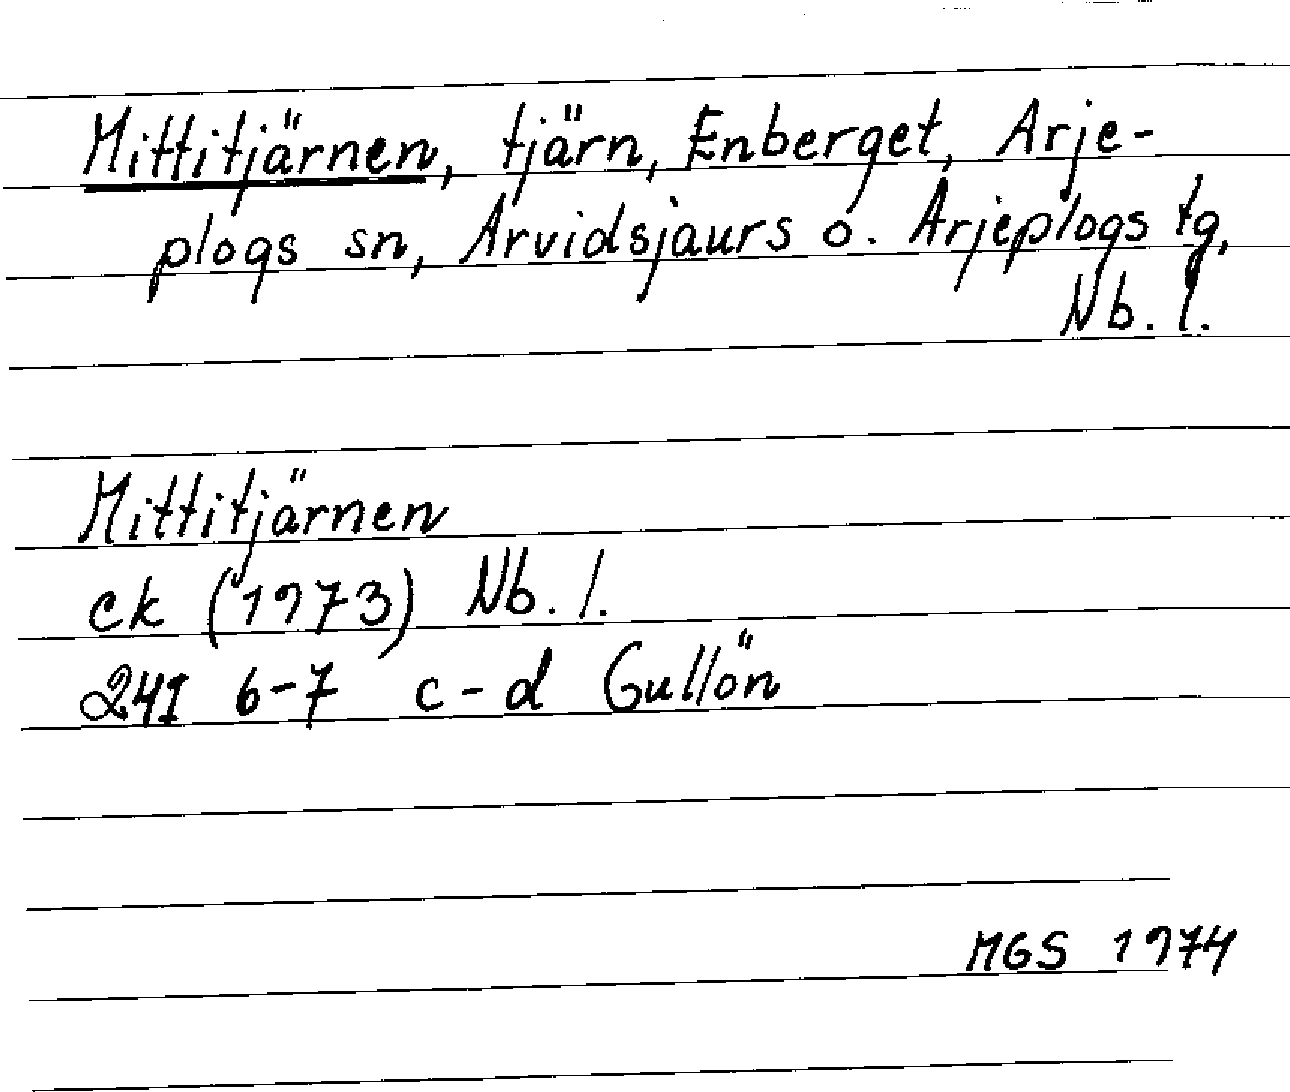 Mittitjärnen, tjärn, Enberget, Arje-
plogs sn, Arvidsjaurs o. Arjeplogs tg,
Nb. l.
Mittitjärnen
ek (1973) Nb. l.
24I 6-7 c-d Gullön
MGS 1974